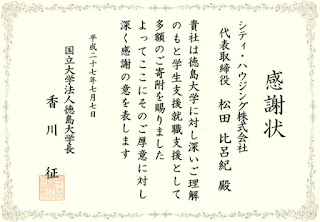 感謝状
シティ・ハウジング株式会社
代表取締役 松田 比呂紀 殿
貴社は徳島大学に対し深いご理解
のもと学生支援就職支援として
多額のご寄附を賜りました
よってここにそのご厚意に対し
深く感謝の意を表します
平成二十七年七月七日
国立大学法人徳島大学長
香川 征